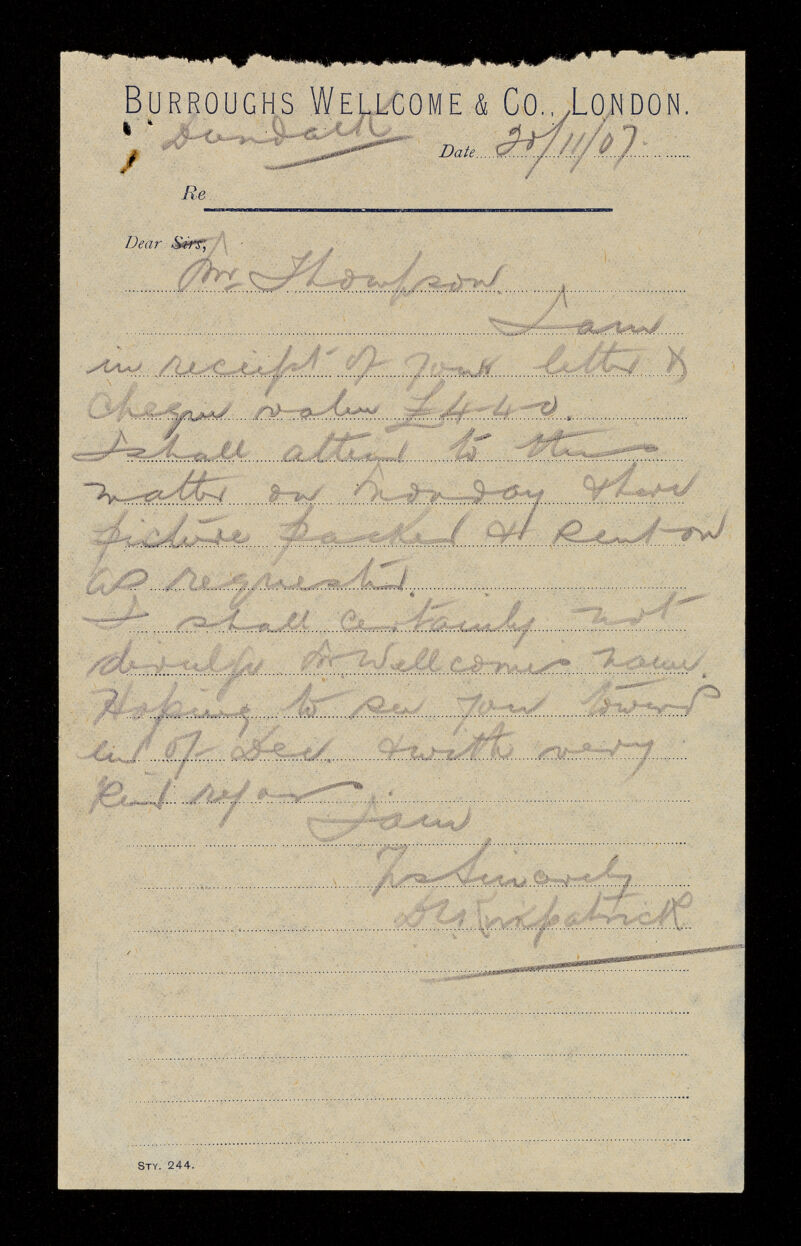 BURROUGHS WELLCOME & CO., LONDON.
Dundalk
Date 30/11/07.
Re
Dear Sirs,
Mr Thompson.
I am
in receipt of your letter &
cheque value £4-4-0.
I shall attend to this
matter on Monday & have
picture packed & sent on
as requested.
I shall certainly not
divulge Mr Wellcomes name.
Hoping to see you toward
end of Dec. & with very
kind regards
I am
Yrs Sincerely
Kirkpatrick
STY. 244.